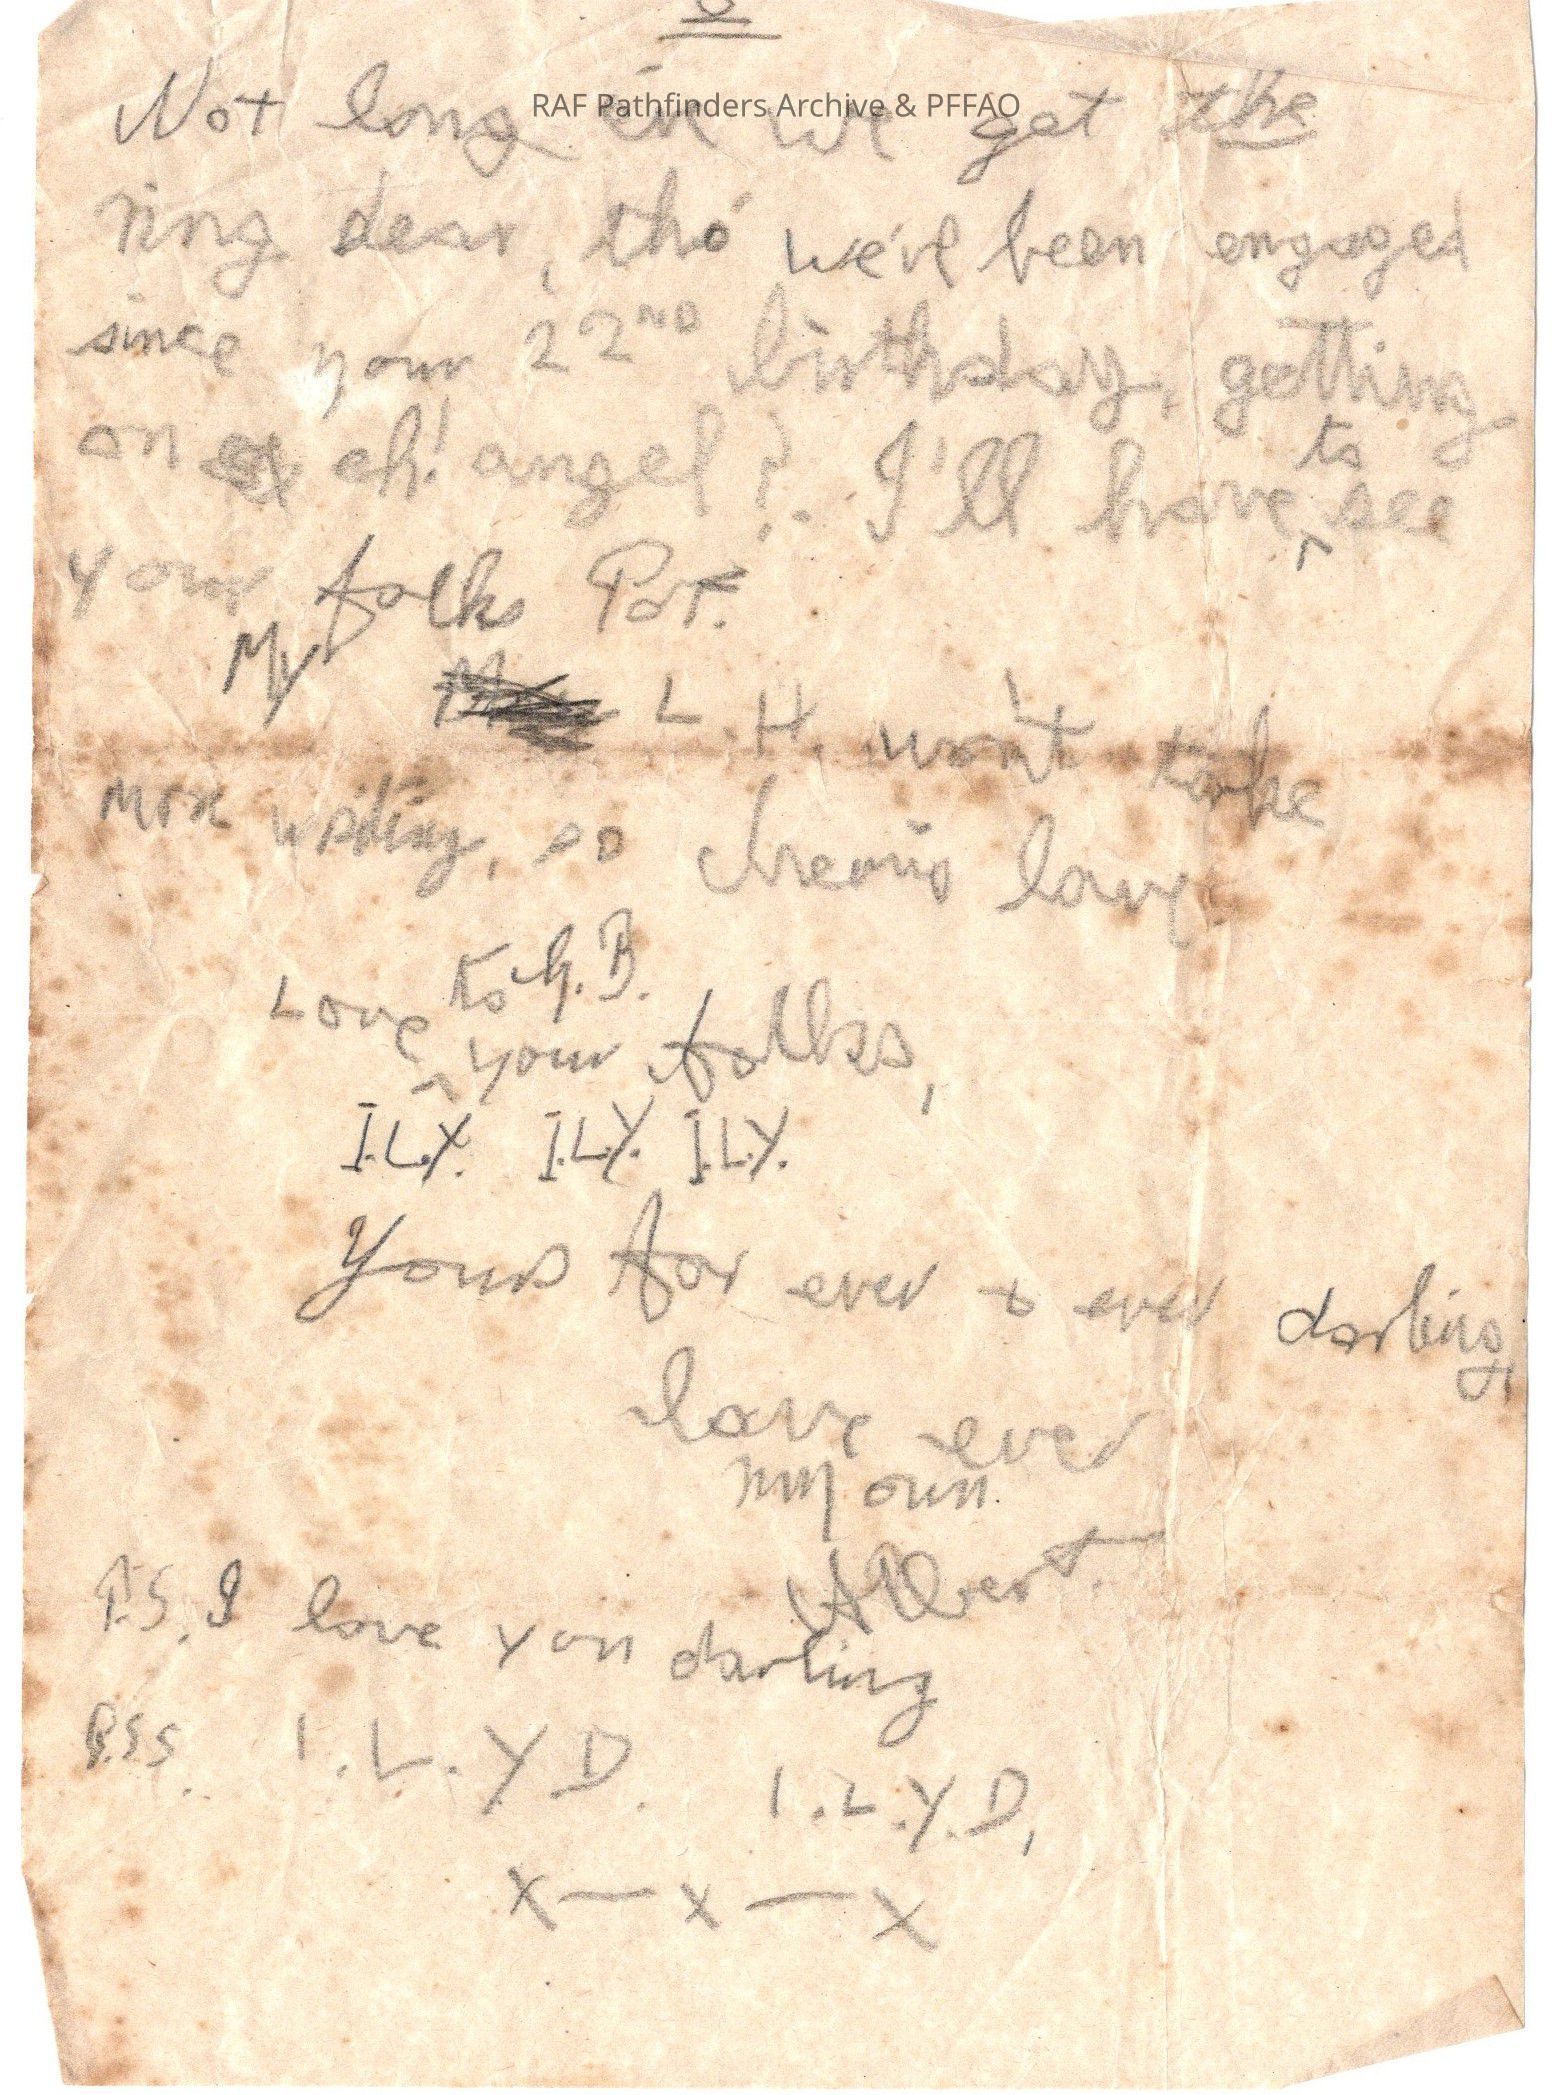 RAF Pathfinders Archive & PFFAO
Not long ere we get the
ring dear, tho' we've been engaged
since your 22ND birthday, getting
on eh! angel?. I'll have to see
your folks Pat.
My L.H. won't take
more writing, so cheerio love
Love to G.B.
your folks,
I.L.Y. I.L.Y. I.L.Y.
Yours for ever & ever darling,
love ever
my own.
Albert.
P.S. I love you darling
P.S.S. I.L.Y D. I.L.Y.D,
x — x — x